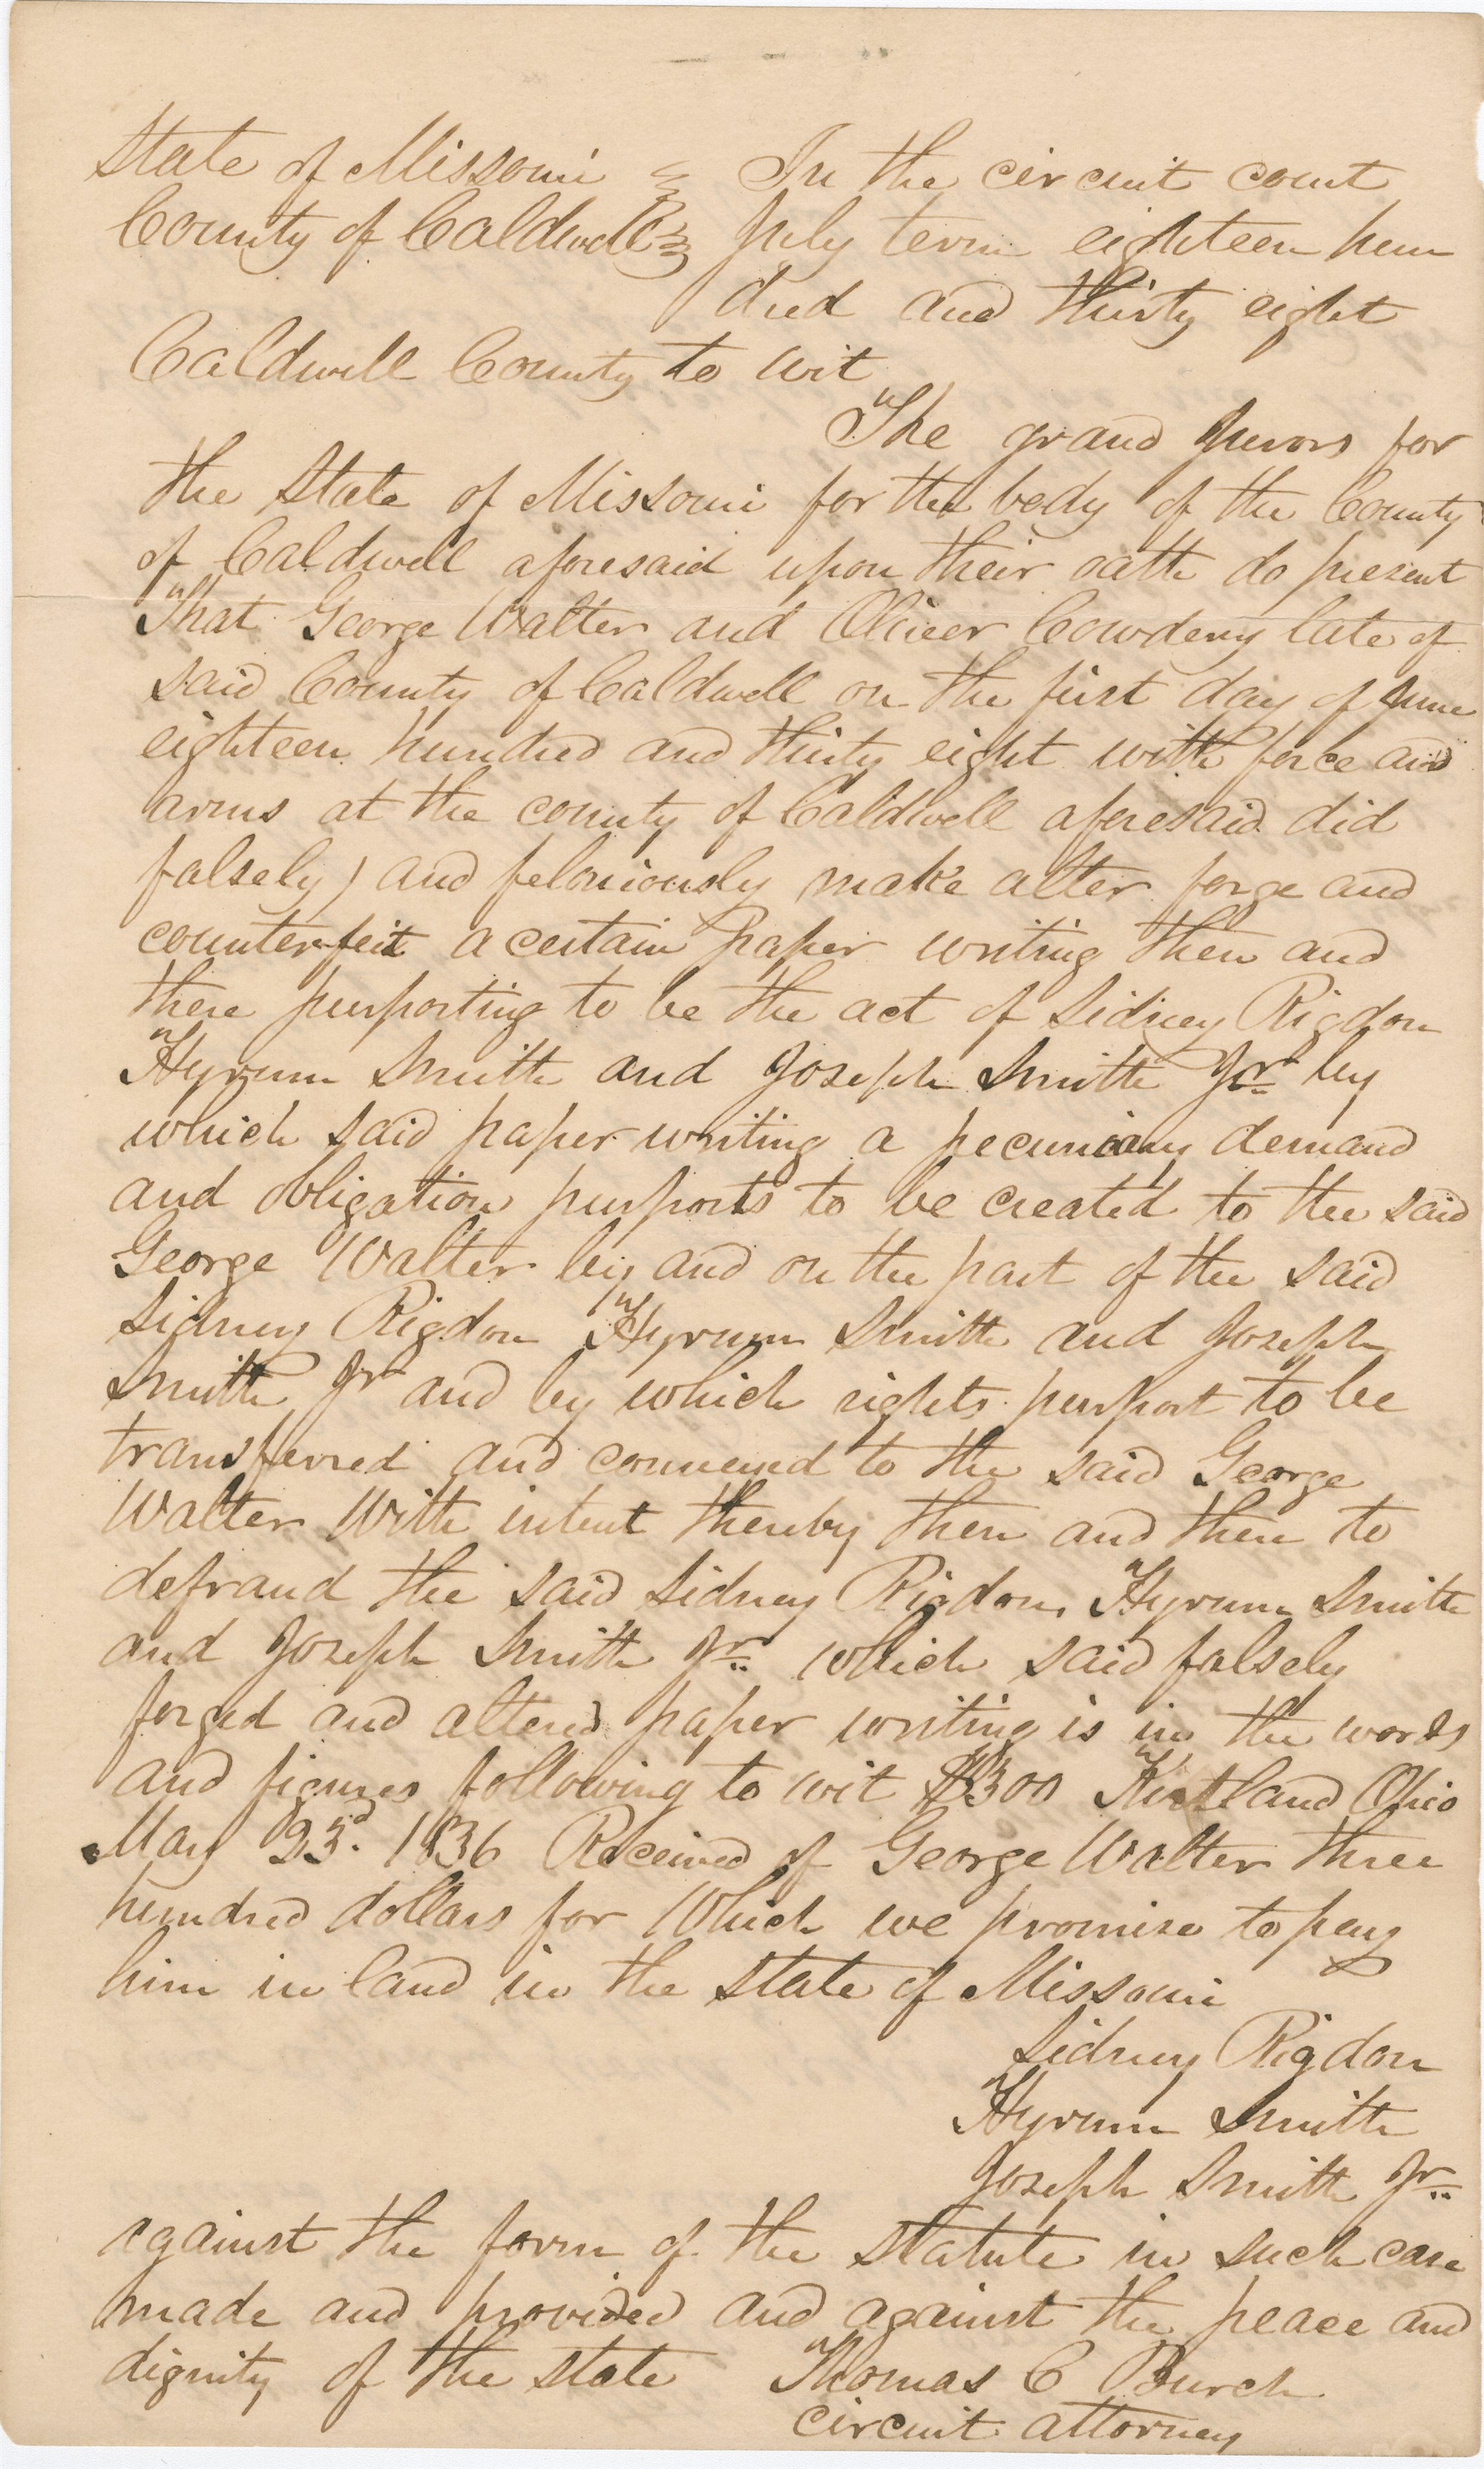 State of Missouri } In the circuit court
County of Caldwell } July term eighteen hun
dred and thirty eight
Caldwell County to wit
The grand Jurors for
the State of Missouri for the body of the County
of Caldwell aforesaid upon their oath do present
That George Walter and Oliver Cowdery late of
said County of Caldwell on the first day of June
eighteen hundred and thirty eight with force and
arms at the county of Caldwell aforesaid did
falsely) and feloniously make alter forge and
counterfeit a certain Paper writing then and
there purporting to be the act of Sidney Rigdon
Hyrum Smith and Joseph Smith Jr by
which said paper writing a pecuniary demand
and obligation purports to be created to the said
George Walter by and on the part of the said
Sidney Rigdon Hyrum Smith and Joseph
Smith Jr and by which rights purport to be
transferred and conveied to the said George
Walter With intent thereby then and there to
defraud the said Sidney Rigdon, Hyrum Smith
and Joseph Smith Jr which said falsely
forged and altered paper writing is in the words
and figures following to wit $300 Kirtland Ohio
May 23d. 1836 Received of George Walter three
hundred dollars for Which we promise to pay
him in land in the State of Missouri
Sidney Rigdon
Hyrum Smith
Joseph Smith Jr
against the form of the statute in such case
made and provided and against the peace and
dignity of the state Thomas C Burch
circuit attorney